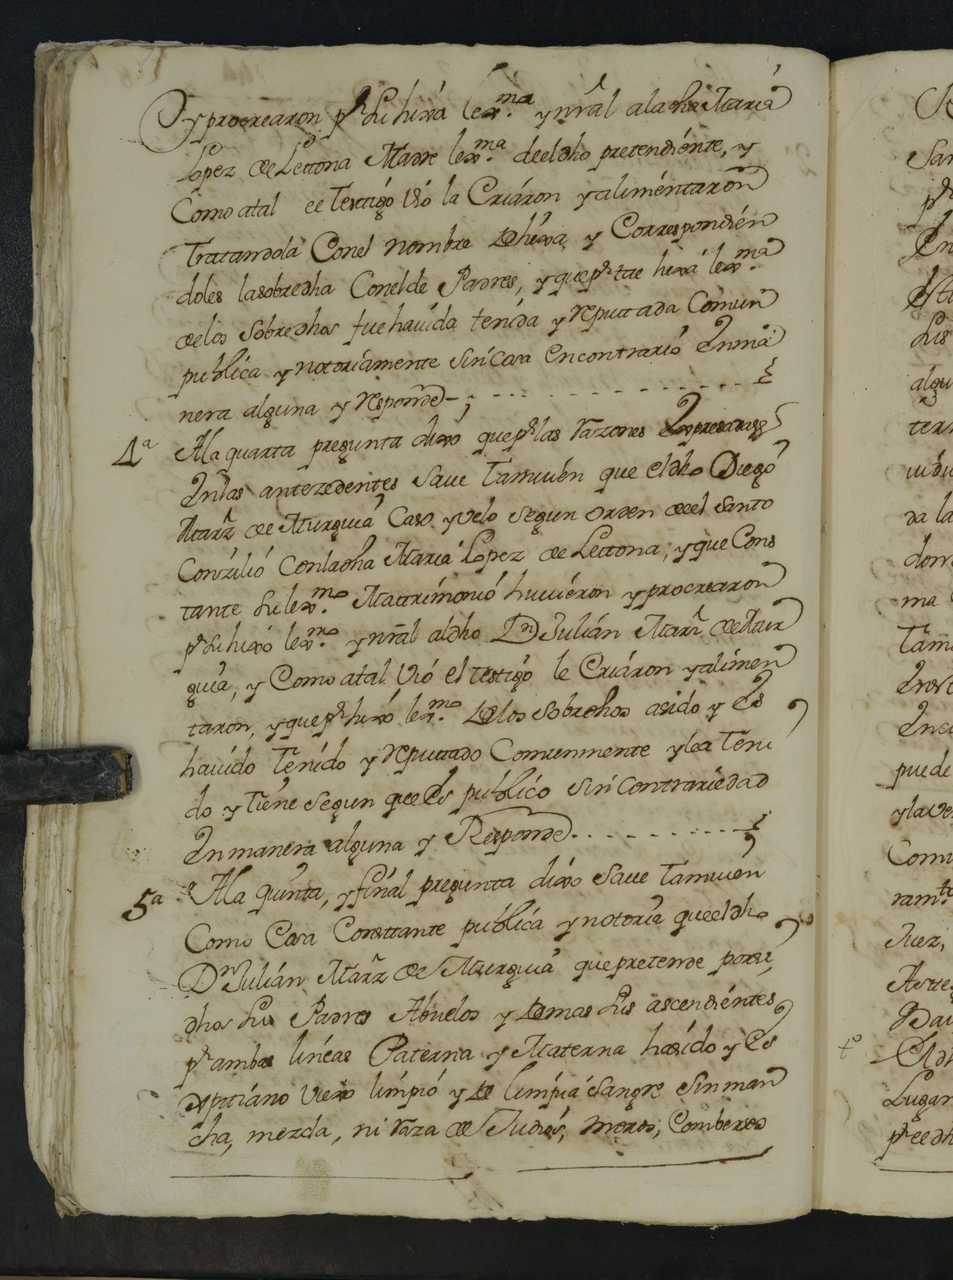 y procrearon pr. su hixa lexma. y nrâl a la dha Maria
Lopez de Letona Madre lexma. de el dho pretendiente, y
Como atal ee Testigo Vió la Criáron y aliméntarón
Tratandola Con el nombre de hixa, y Correspondién
doles la sobredha Con el de Padres, y que pr. tae hixá lexma.
de los sobredhos fue havida tenida y reputtada Comun
publica y notoriamente sin Cosa en contrarió En ma
nera alguna y responde
4a A la quarta pregunta dixo que pr. las razones Expresadas
En las antezedentes Save Tamvién que el dho Diego
Marz. de Murguia Caso y veló segun orden de el santo
Conzilió Con la dha Maria Lopez de Lettona, y que Cons
tante su lexmo. Matrimonió huviéron y procrearon
pr. su hixo lexmo. y nrâl al dho Dn. Julián Marz. de Mur
guia, y Como atal Vió el testigo le Criáron y alimen
taron, y que pr. hixó lexmo. de los sobredhos a sido y Es
havido Tenido y reputtado Comunmente y le a Teni
do y tiene segun que es público sin Contrariedad
En manera alguna y Responde
5a A la quinta, y final pregunta dixo Save Tamvien
Como Cosa Constante publica y notoria que el dho
Dn. Julián Marz. de Murguia que pretende por si,
dhos sus Padres Abuelos y demas sus ascendiéntes
pr. ambas lineas Paterna y Materna ha sido y Es
xptiáno viexo limpió y de limpia sangre sin man
cha, mezcla, ni raza de Judiós, moros, Combersos